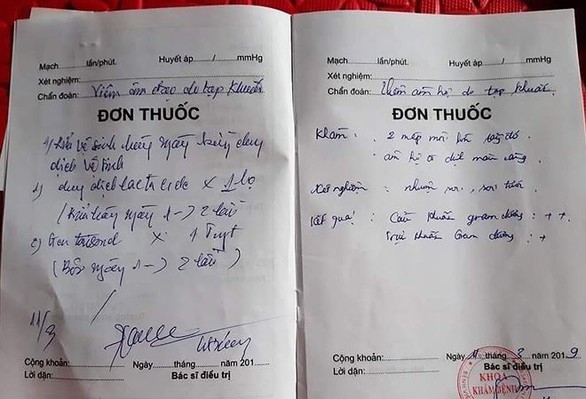 Mạch.......lần/phút. Huyết áp....../......mmHg
Xét nghiệm:
Chẩn đoán: Viêm âm đạo do tạp khuẩn
ĐƠN THUỐC
vệ sinh hàng ngày bằng dung
dịch vệ sinh
1) dung dịch x 1 lọ
(ngày 1 -> 2 lần)
2) x 1 Tuýt
(Bôi ngày 1 -> 2 lần)
11/3
Cộng khoản: Ngày......tháng......năm 201
Lời dặn: Bác sĩ điều trị
Mạch.......lần/phút. Huyết áp....../......mmHg
Xét nghiệm:
Chẩn đoán: Viêm âm hộ do tạp khuẩn.
ĐƠN THUỐC
Khám : 2 mép môi
âm hộ có dịch màu vàng.
Xét nghiệm : nhuộm soi, soi tươi
Kết quả : Cầu khuẩn gram dương : ++
Trực khuẩn Gram dương : +
Cộng khoản: Ngày 11 tháng 3 năm 2019
Lời dặn: Bác sĩ điều trị
KHOA
KHÁM BỆNH